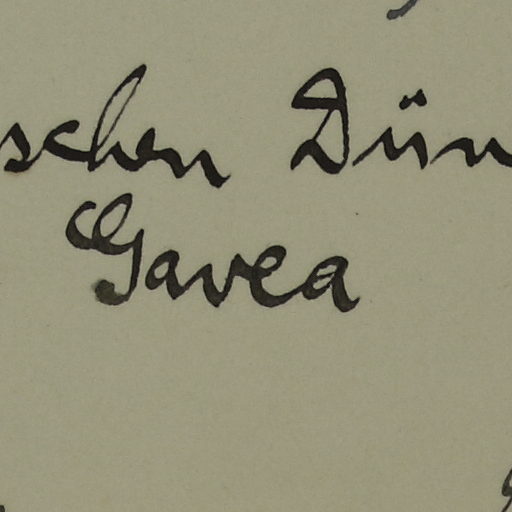 schen Dün
Gavea